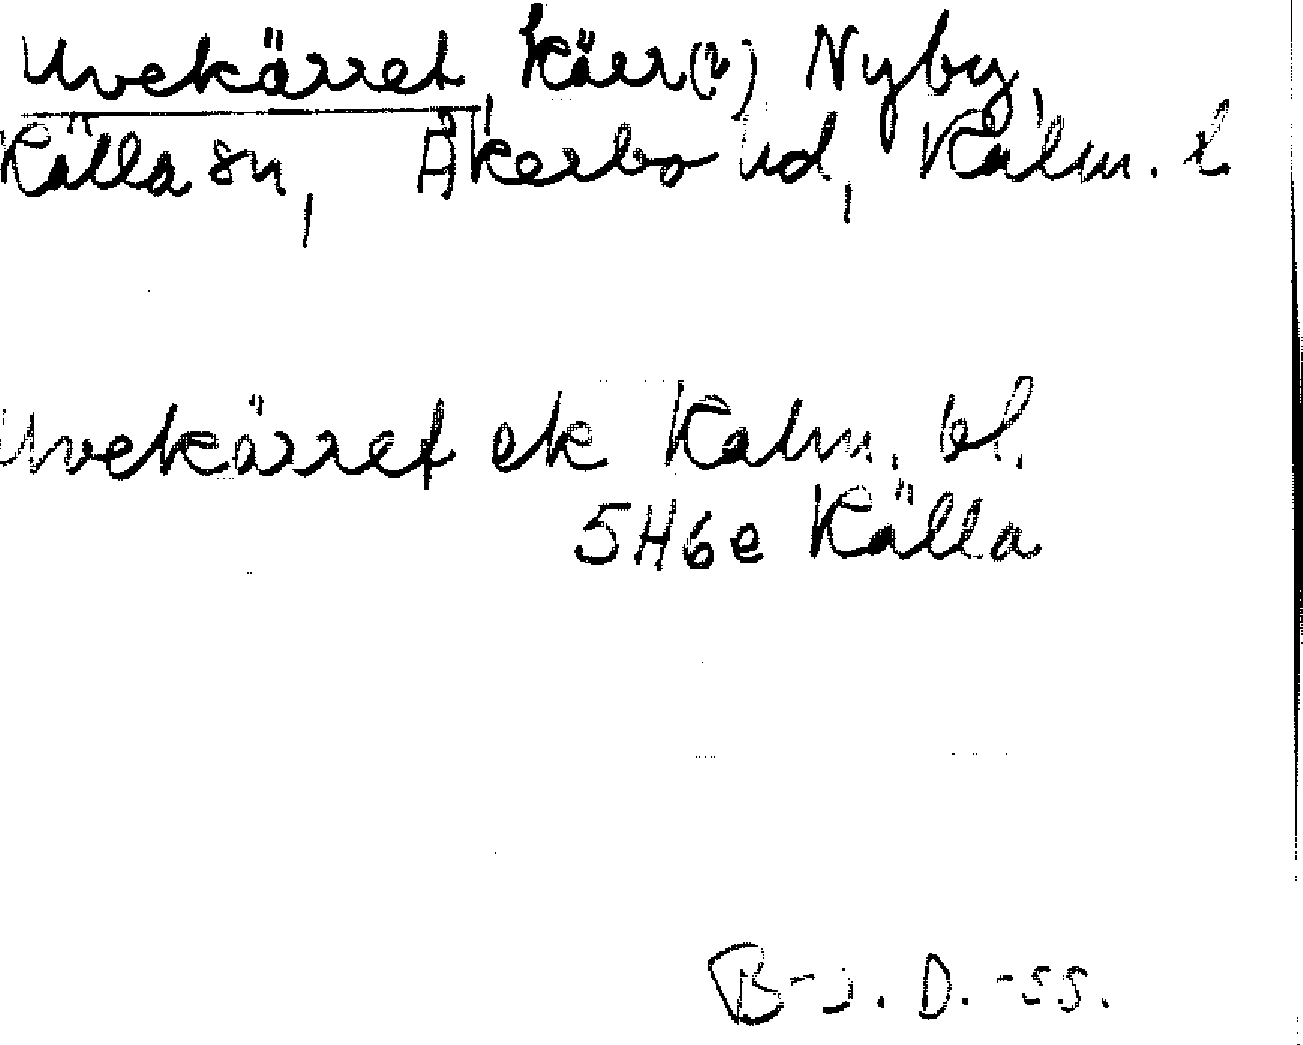 Uvekärret, kärr(?) Nyby,
Källa sn, Åkerbo hd, Kalm. l
Uvekärret ek Kalm. bl.
5H6e Källa
B-J. D. -55.